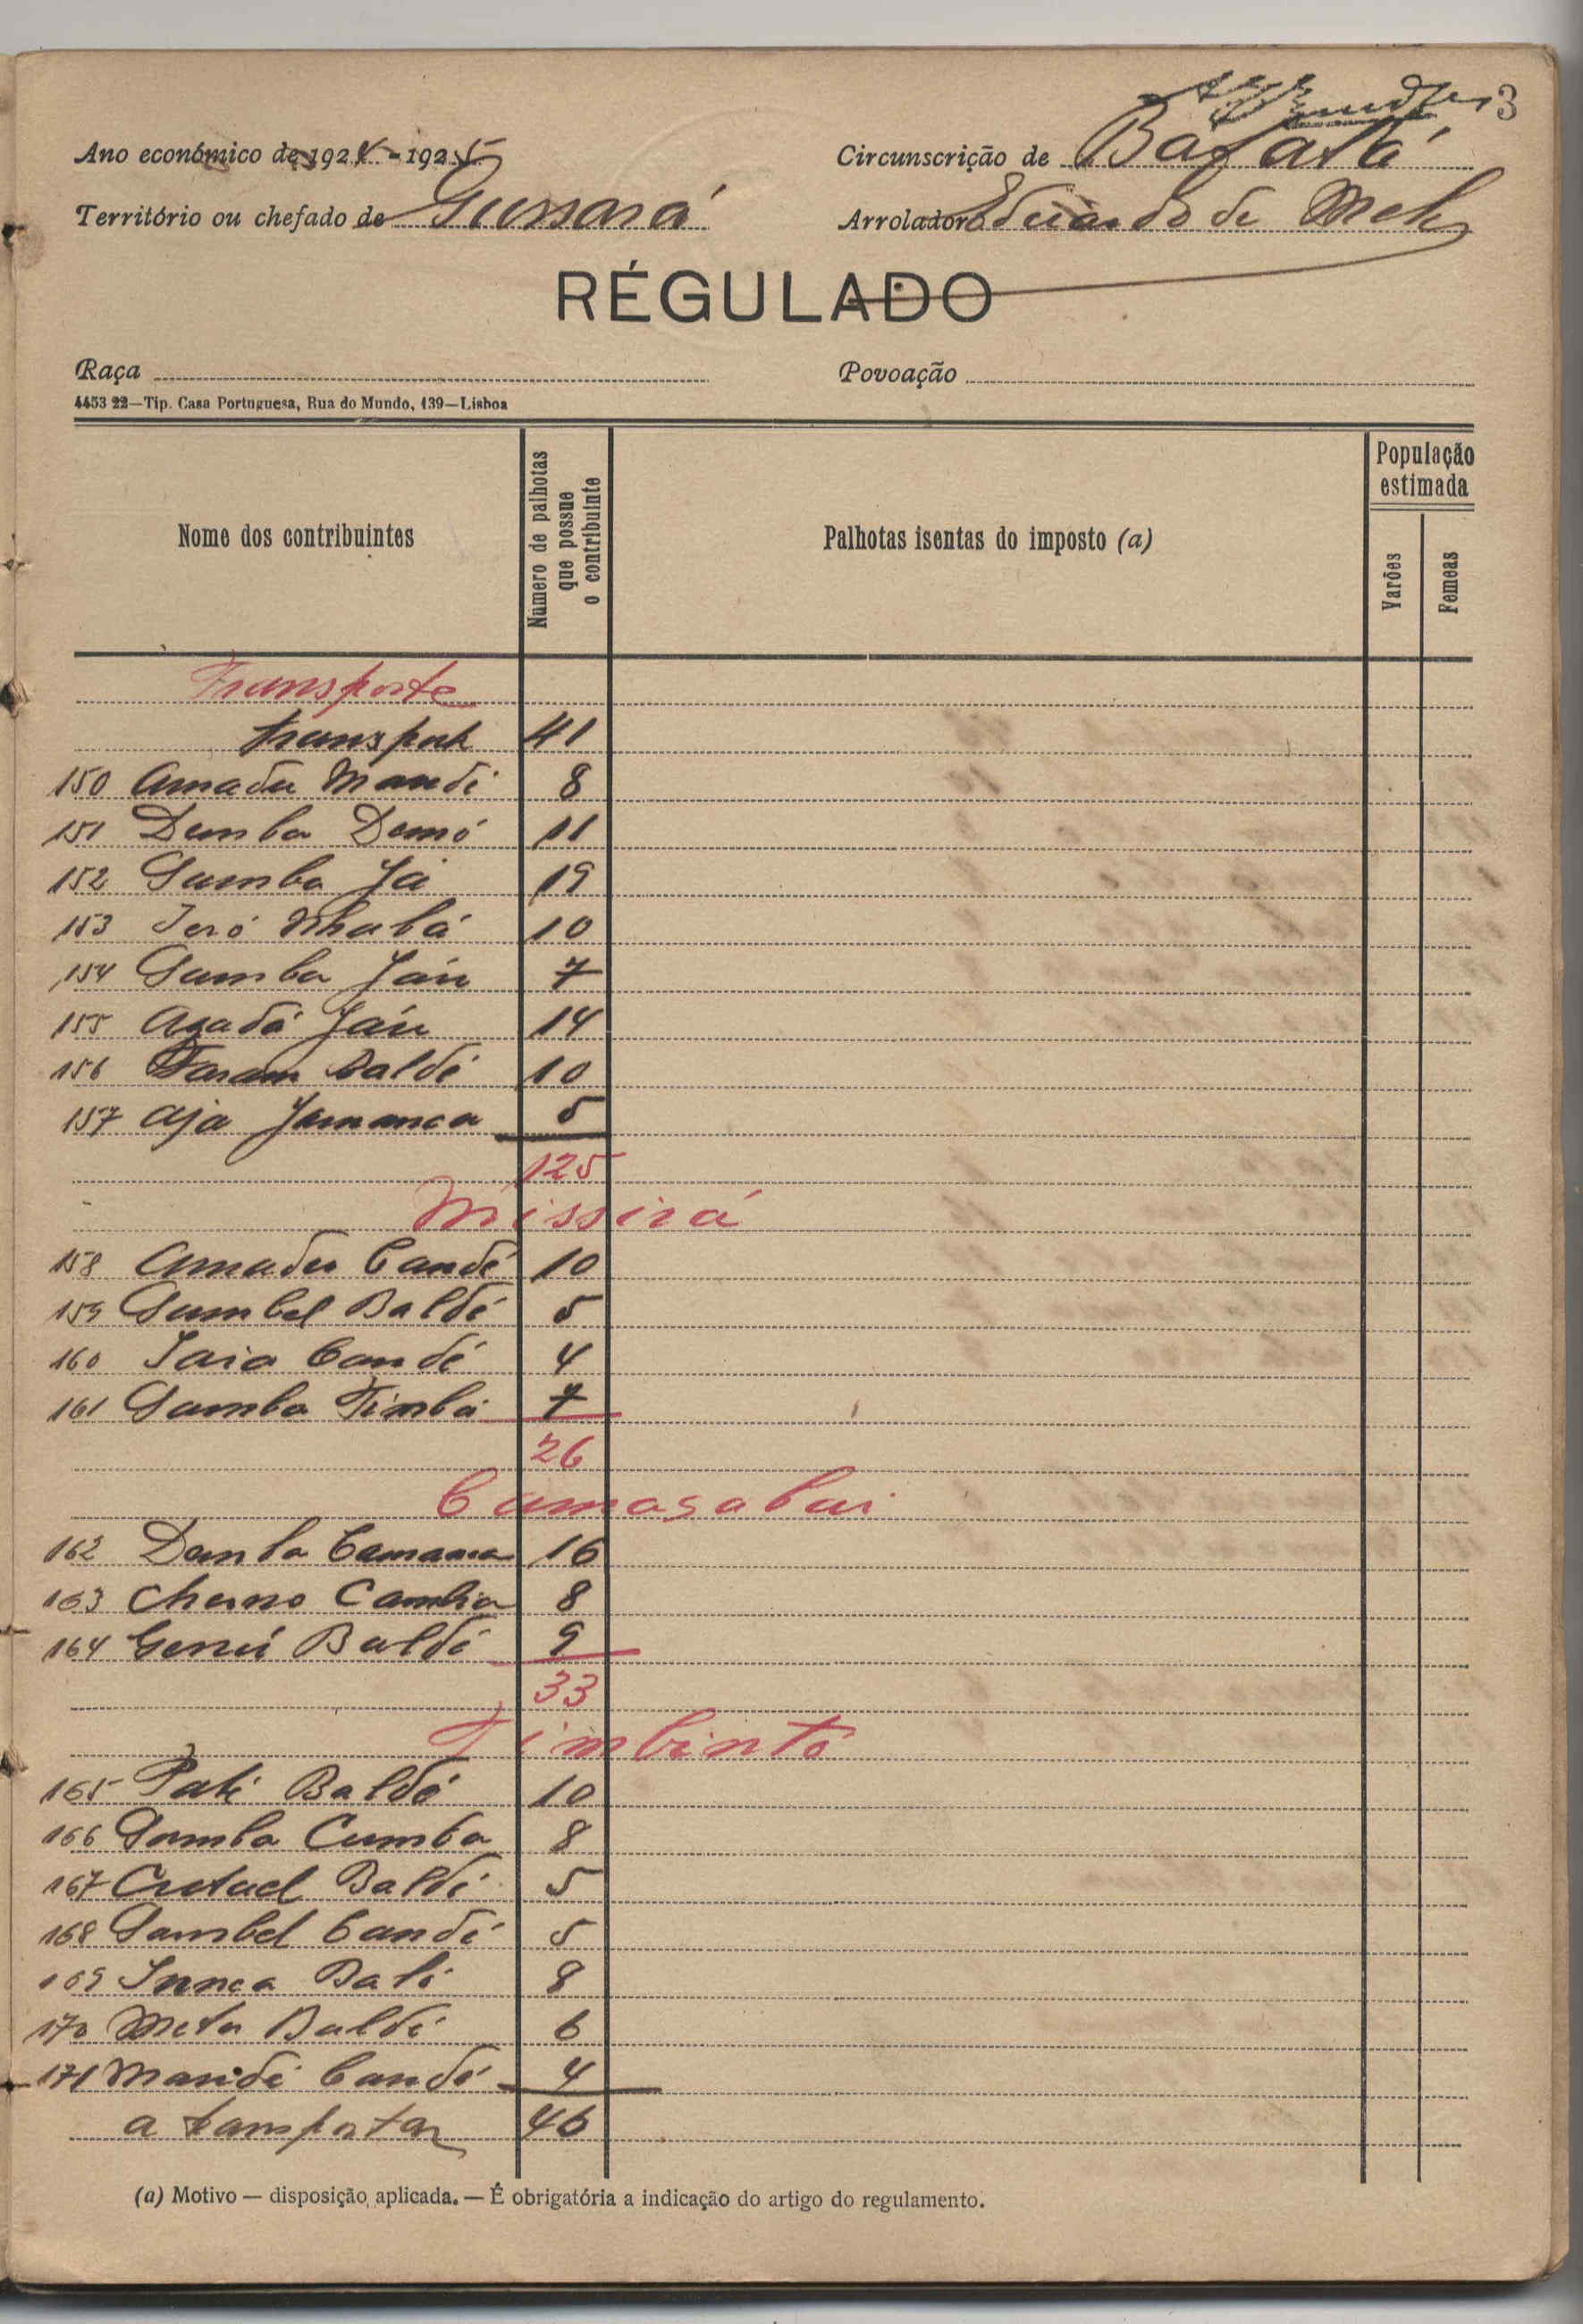 3
Ano económico de 1924-1925 Circunscrição de Bafatá
Território ou chefado de Gussará Arrolador Eduardo de Melo
RÉGULADO
Raça Povoação
4453 22—Tip. Casa Portuguesa, Rua do Mundo, 139—Lisboa
Nome dos contribuintes Número de palhotas que possue o contribuinte Palhotas isentas do imposto (a) População estimada Varões Femeas
Transporte
transporte 41
150 Amadu Mandi 8
151 Demba Demó 11
152 Samba Já 19
153 Jeró Nhabá 10
154 Samba Jáu 7
155 Agadá Jáu 14
156 Faram Baldé 10
157 Aja Jamanca 5
125
Missirá
158 Amadu Candé 10
159 Sambel Baldé 5
160 Iaia Candé 4
161 Samba Timbá 7
26
Camasabai
162 Demba Camanca 16
163 Cherno Cambia 8
164 Generi Baldé 9
33
Timbintó
165 Pati Baldé 10
166 Samba Cumba 8
167 Baldé 5
168 Sambel Candé 5
169 Innca Bali 8
170 Meta Baldé 6
171 Maridi Candé 4
a transportar 46
(a) Motivo — disposição aplicada. — É obrigatória a indicação do artigo do regulamento.